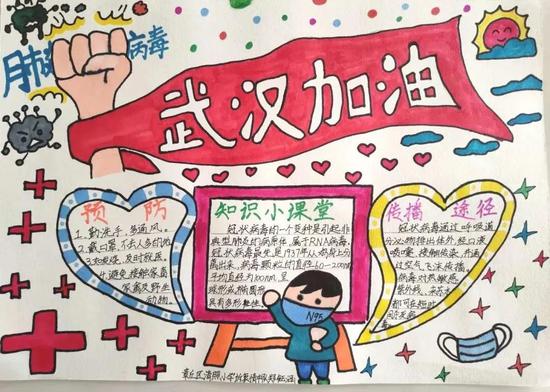 肺
病毒
武汉加油
预 防
1.勤洗手,多通风。
2.戴口罩,不去人多的地
及时就医。
4.避免接触家禽
家禽及野生
动物。
知识小课堂
冠状病毒的一个变种是引起非
典型肺炎的病原体,属于RNA病毒。
冠状病毒最先是1937年从鸡身上分
离出来,病毒颗粒的直径60-200nm,
平均直径为100nm,呈
球形或椭圆形
具有多形性。
传播 途径
冠状病毒通过呼吸道
分泌物排出体外,经口液
喷嚏、接触传染,并通
过空气飞沫传播。
病毒对热敏感
紫外线
都可在短时
N95
章丘区清照小学